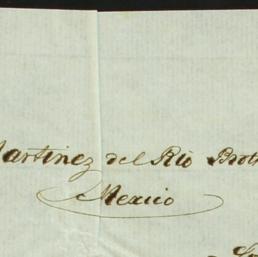 Martinez del Rio Broth
Mexico